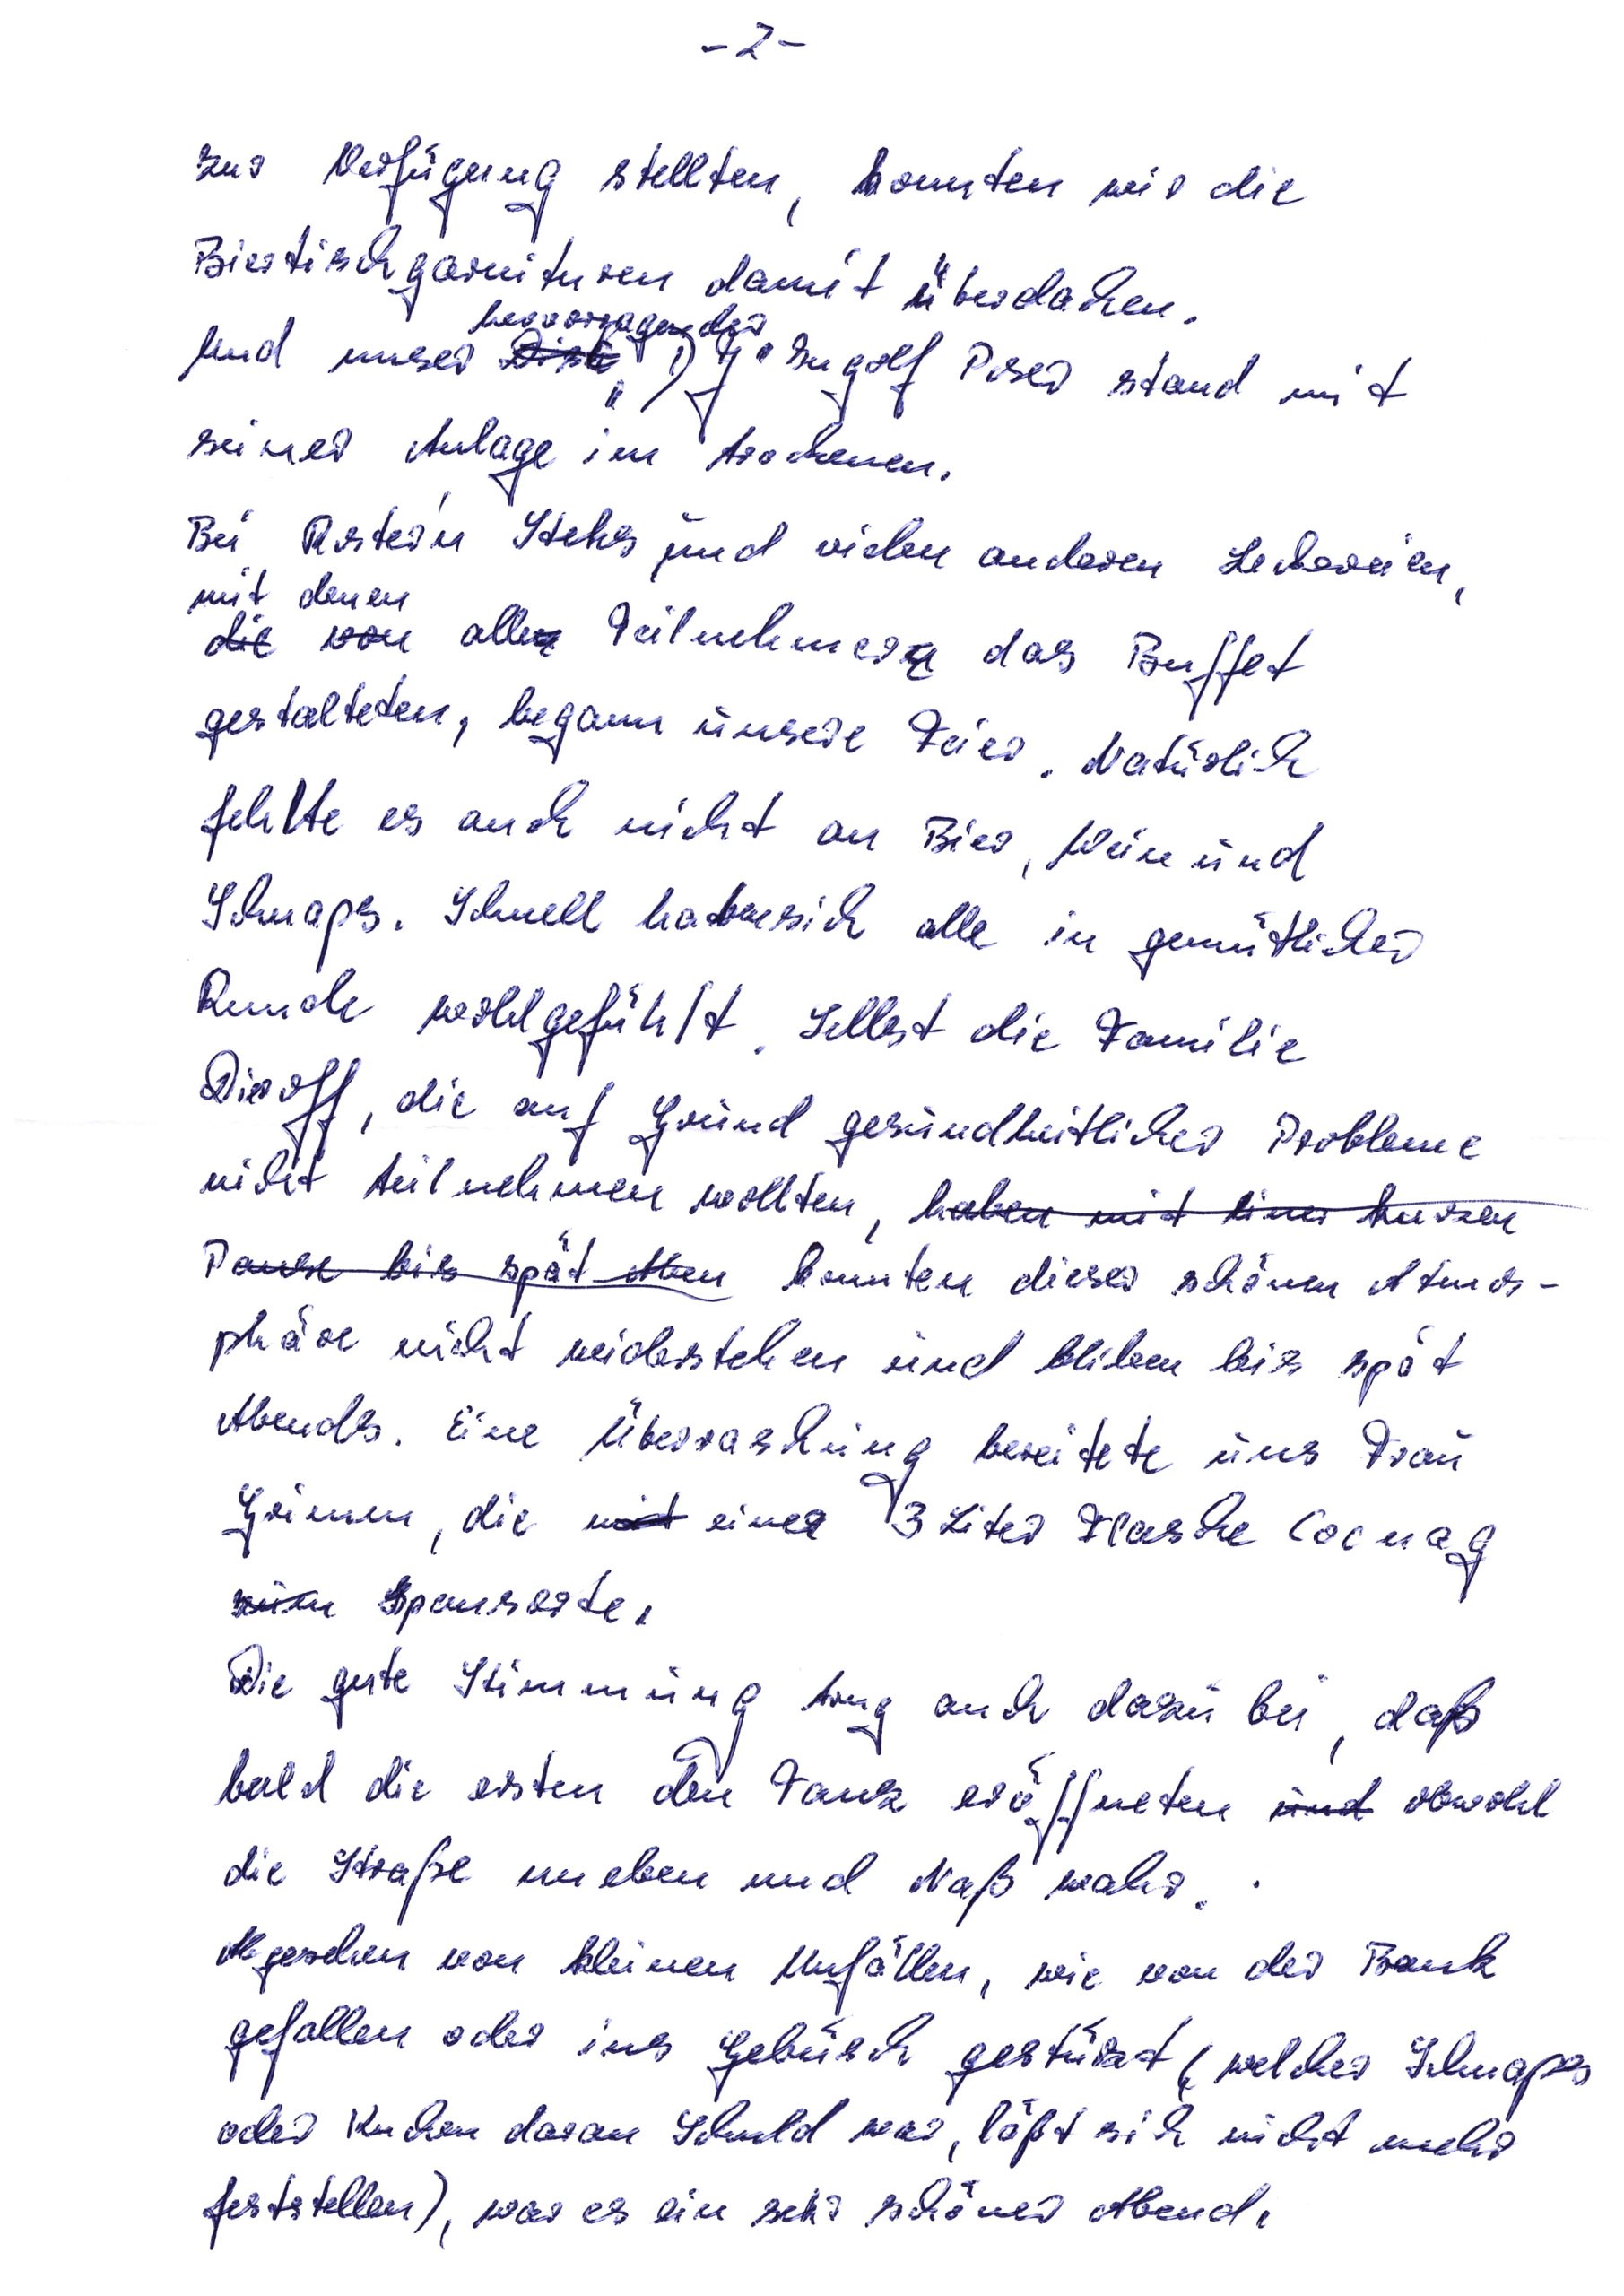 - 2 -
zur Verfügung stellten, konnten wir die
Biertischgarnituren damit überdachen.
hervorragender
Und unser ~~Disk~~ "DJ" Ingolf Poser stand mit
seiner Anlage im trockenen.
Bei Roster'n Steks und vielen anderen Leckereien,
mit denen
~~die von~~ alle Teilnehmer das Buffet
gestalteten, begann unsere Feier. Natürlich
fehlte es auch nicht an Bier, Wein und
Schnaps. Schnell haben sich alle in gemütlicher
Runde wohlgefühlt. Selbst die Familie
Dieroff, die auf Grund gesundheitlicher Probleme
nicht teilnehmen wollten, ~~haben mit einer kurzen~~
~~Pause bis spät Aben~~ konnten dieser schönen Atmos-
phäre nicht widerstehen und blieben bis spät
Abends. Eine Überraschung bereitete uns Frau
Grimm, die ~~mit~~ eine 3 Liter Flasche Cocnag
~~zum~~ sponsorte.
Die gute Stimmung trug auch dazu bei, daß
bald die ersten den Tanz eröffneten ~~und~~ obwohl
die Straße uneben und Naß wahr.
Abgesehen von kleinen Unfällen, wie von der Bank
gefallen oder ins Gebüsch gestürzt (welcher Schnaps
oder Kuchen daran Schuld war, läßt sich nicht mehr
feststellen), war es ein sehr schöner Abend.